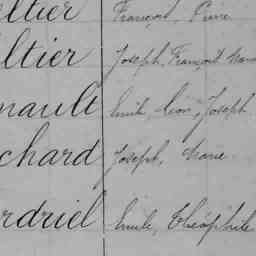 eltier François, Pierre
eltier Joseph, François, Marie
nault Emile, Léon, Joseph
chard Joseph, Marie
rdriel Emile, Théophile